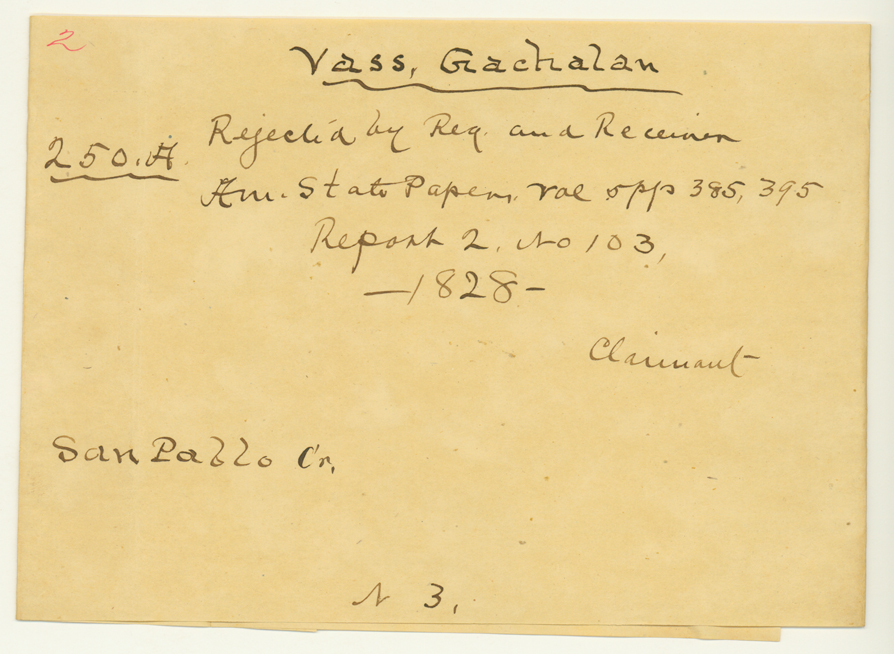 2
Vass, Gachalan
250.A. Rejectid by Reg. and Receiver
Am. State Papers, Vol 5 pp 385, 395
Report 2. No 103,
—1828—
Claimant
San Pablo Cr.
N 3.